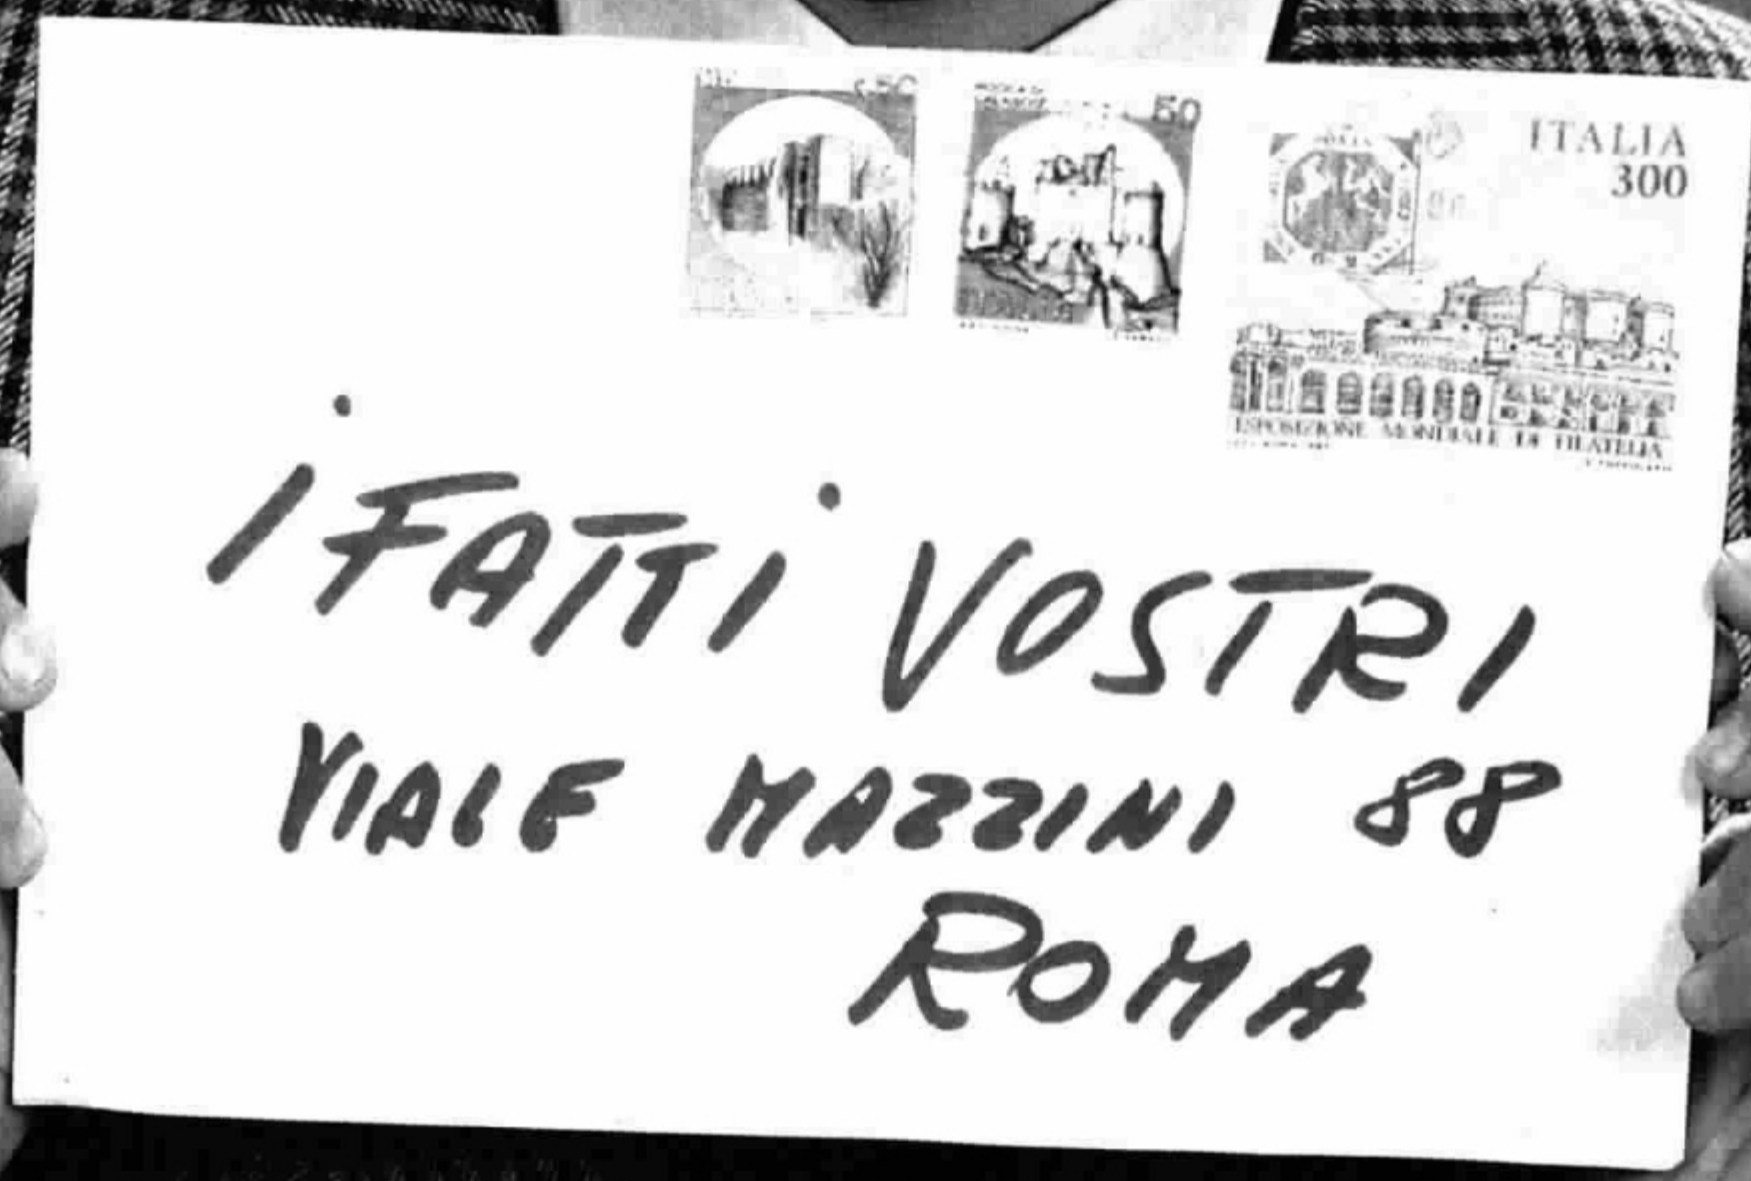 50
ROCCA DI
CALASCIO 50
ITALIA
300
ESPOSIZIONE MONDIALE DI FILATELIA
I FATTI VOSTRI
VIALE MAZZINI 88
ROMA